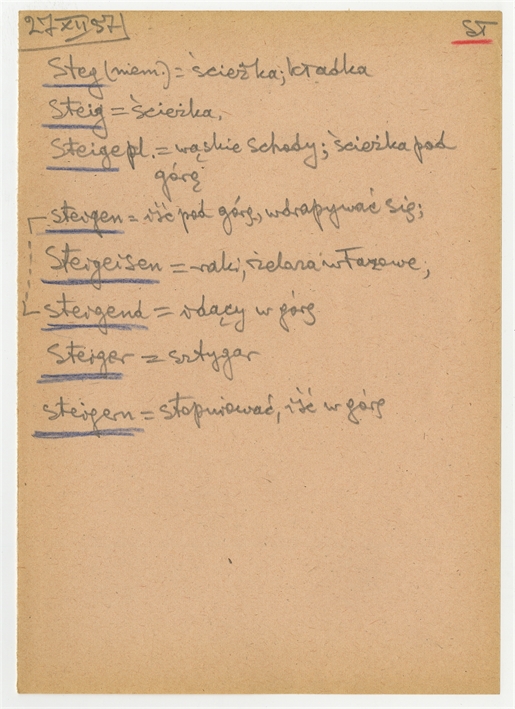 27 XII 97
ST
Steg (niem.) = ścieżka; kładka
Steig = ścieżka,
Steige pl. = wąskie schody; ścieżka pod
górę
steigen = iść pod górę, wdrapywać się;
Steigeisen = raki, żelaza włazowe;
steigend = idący w górę
Steiger = sztygar
steigern = stopniować, iść w górę